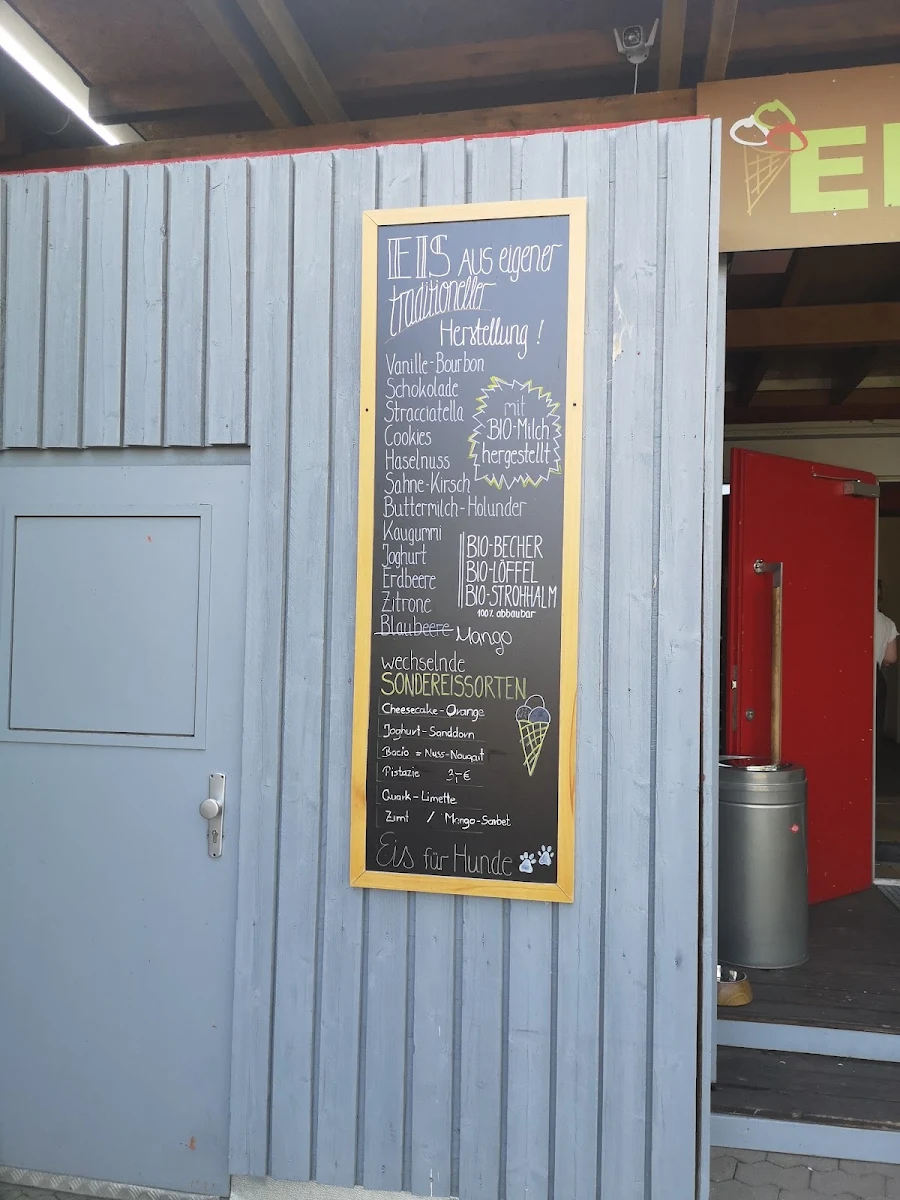 EIS AUS eigener
traditioneller
Herstellung !
Vanille-Bourbon
Schokolade
Stracciatella
Cookies
Haselnuss
Sahne-Kirsch
Buttermilch-Holunder
Kaugummi
Joghurt
Erdbeere
Zitrone
Blaubeere Mango
mit
BIO-Milch
hergestellt
BIO-BECHER
BIO-LÖFFEL
BIO-STROHHALM
100% abbaubar
wechselnde
SONDEREISSORTEN
Cheesecake-Orange
Joghurt-Sanddorn
Bacio = Nuss-Nougat
Pistazie 3,-€
Quark-Limette
Zimt / Mango-Sorbet
Eis für Hunde